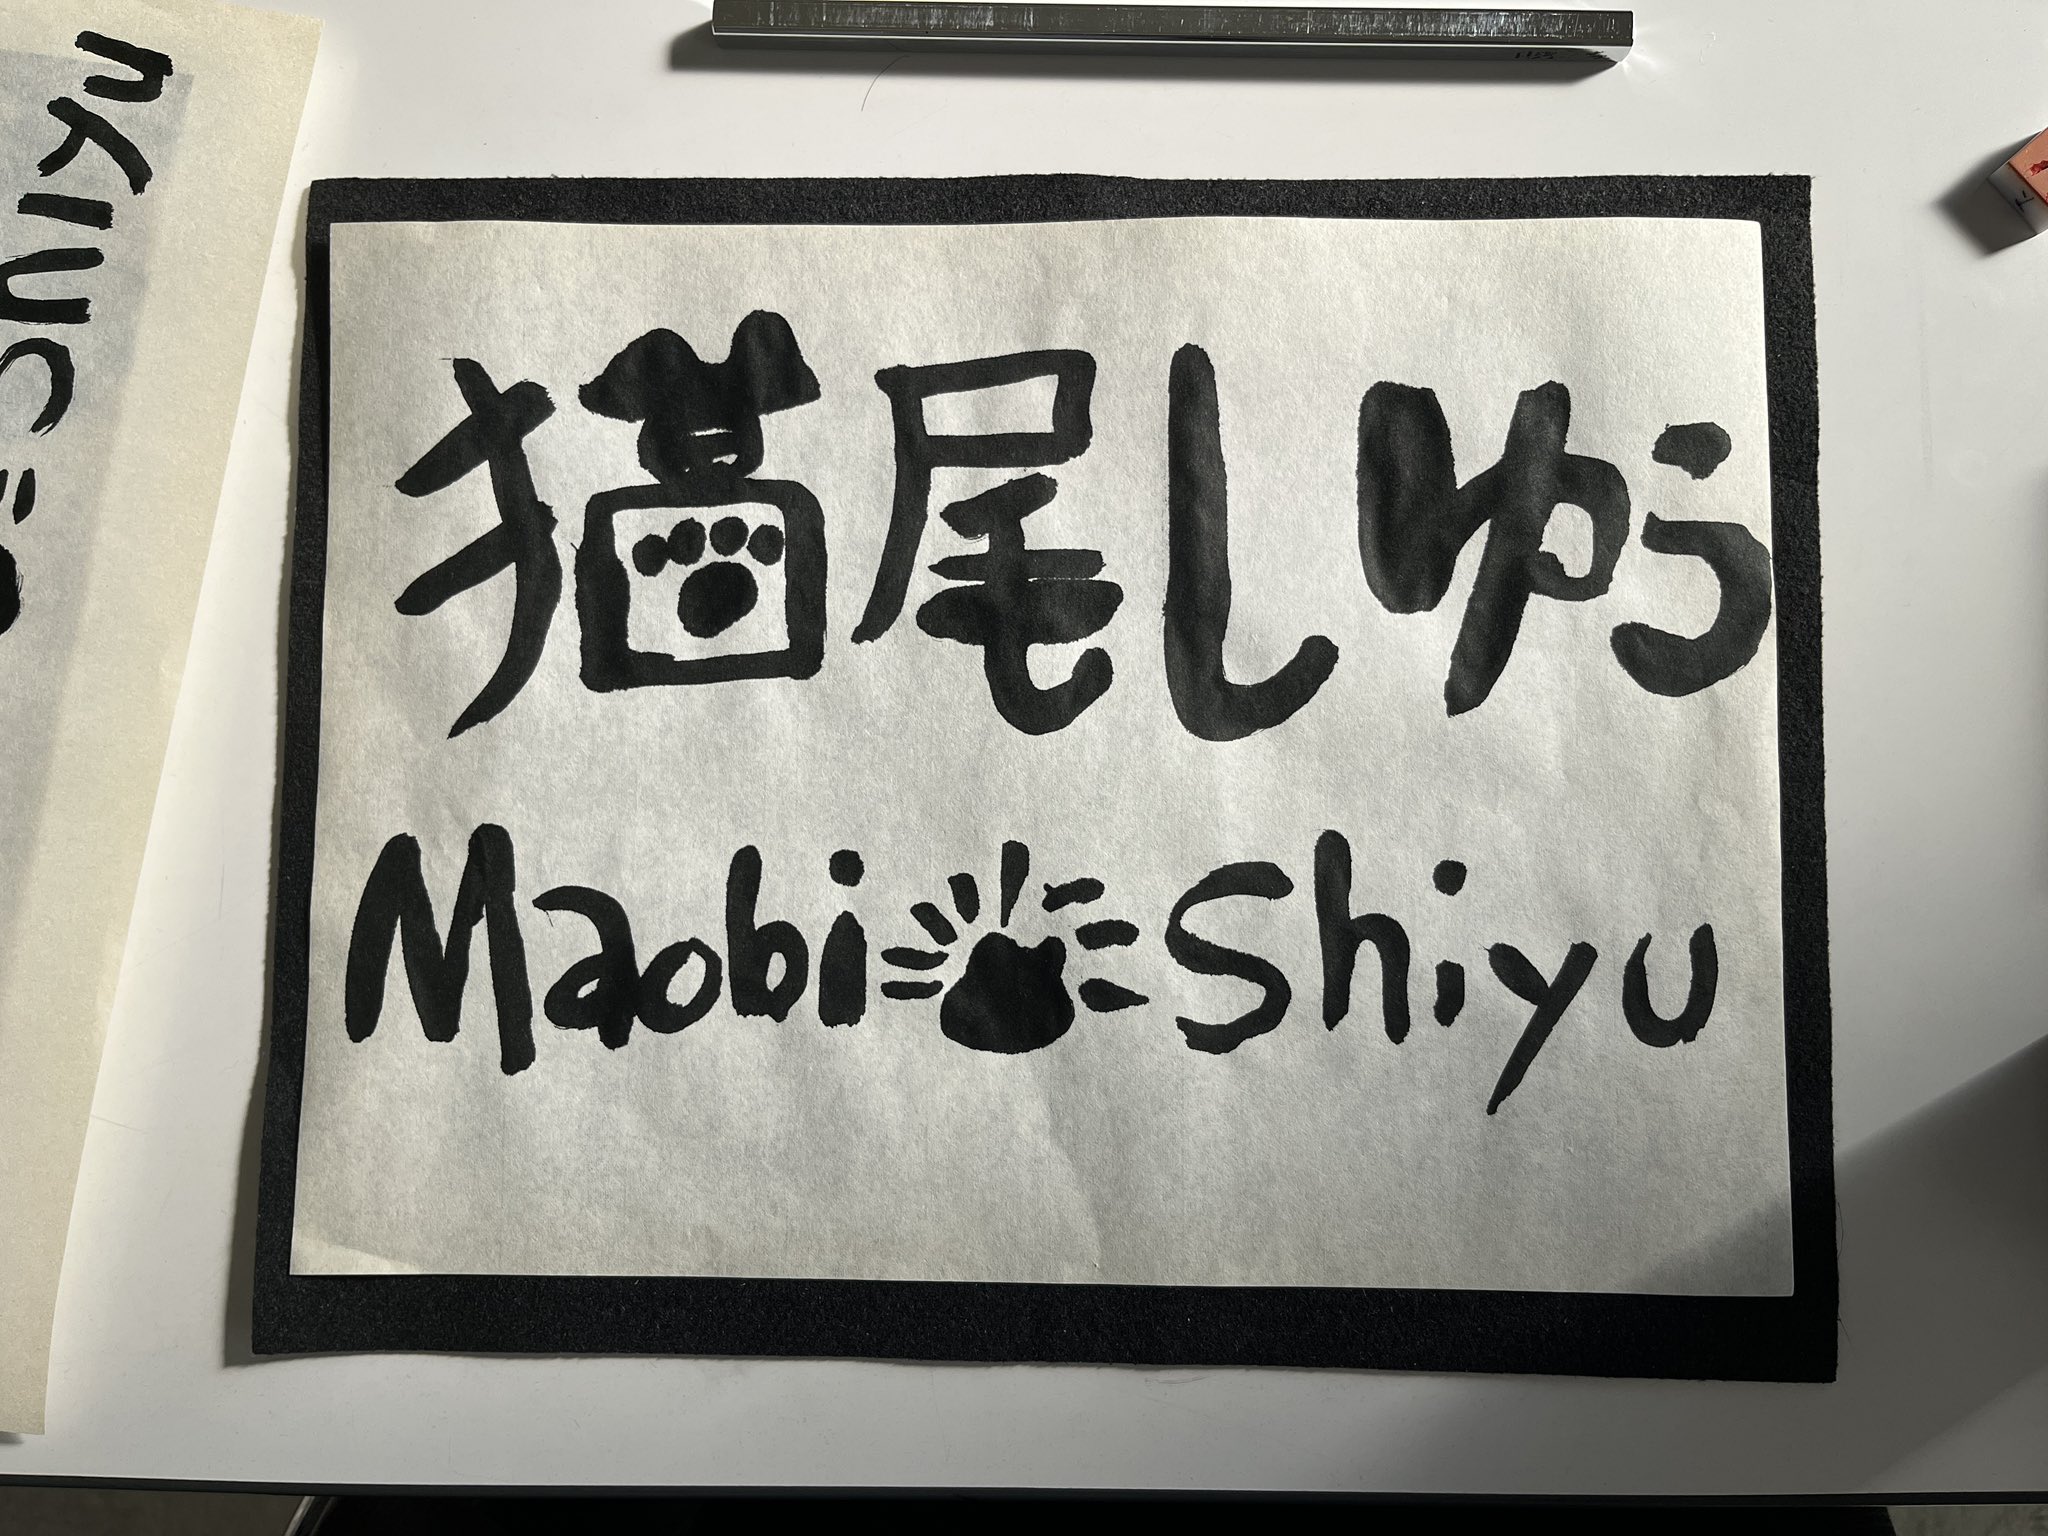 猫尾しゅう
Maobi Shiyu